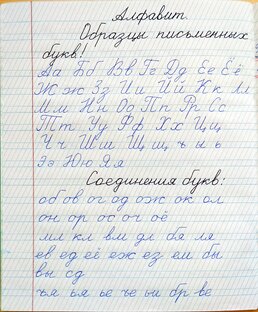 Алфавит.
Образцы письменных
букв!
Аа Бб Вв Гг Дд Ее Ёё
Жж Зз Ии Йй Кк Лл
Мм Нн Оо Пп Рр Сс
Тт Уу Фф Хх Цц
Чч Шш Щщ ъ ы ь
Ээ Юю Яя
Соединения букв:
об ов ог од ож ок ол
он ор ос оч оё
мл кл вм дл бя ля
ев ед её еж ез ем бы
вы сд
ъя ья ье ъе ьи бр ве